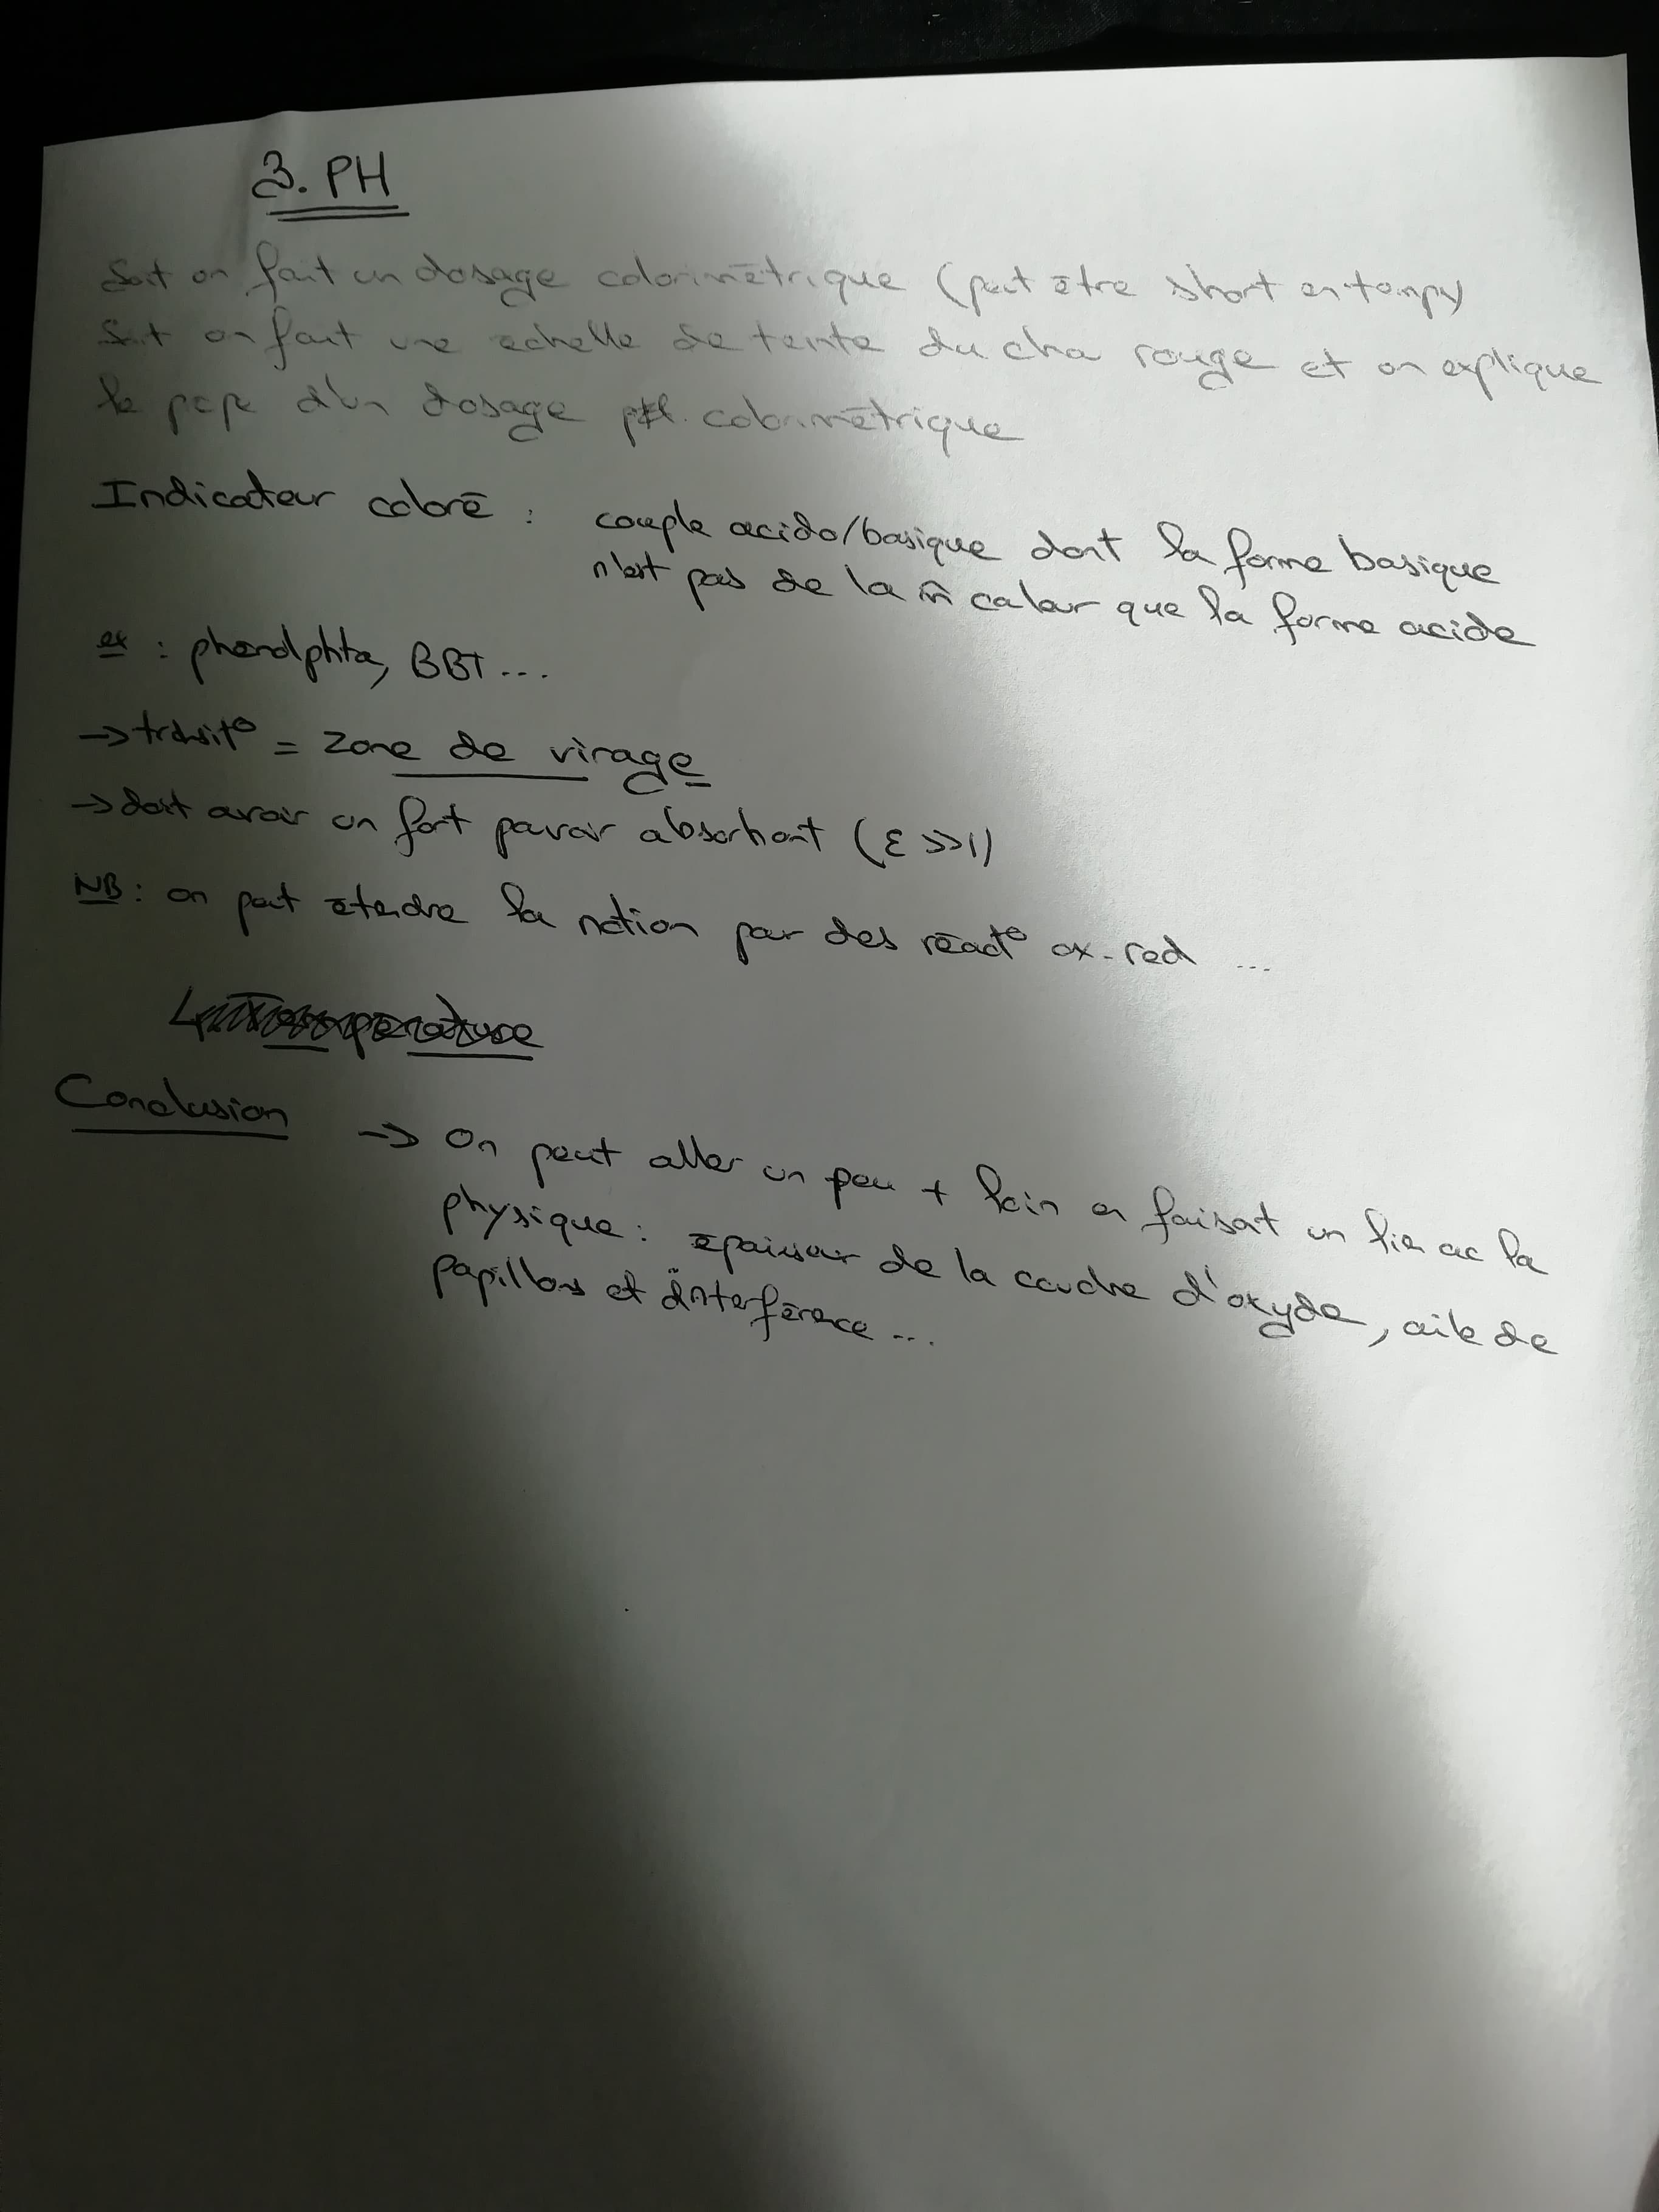 3. PH
Soit on fait un dosage colorimétrique (peut être short en temps)
Soit on fait une échelle de teinte du chou rouge et on explique
le pcpe d'un dosage colorimétrique
Indicateur coloré : couple acido/basique dont la forme basique
n'est pas de la m̂ couleur que la forme acide
ex : phénolphta, BBT...
→ transit° = zone de virage
→ doit avoir un fort pouvoir absorbant (ε >>1)
NB : on peut étendre la notion par des réact° ox-red ...
Conclusion → On peut aller un peu + loin en faisant un lien ac la
physique : épaisseur de la couche d'oxyde, aile de
papillons et interférence ...